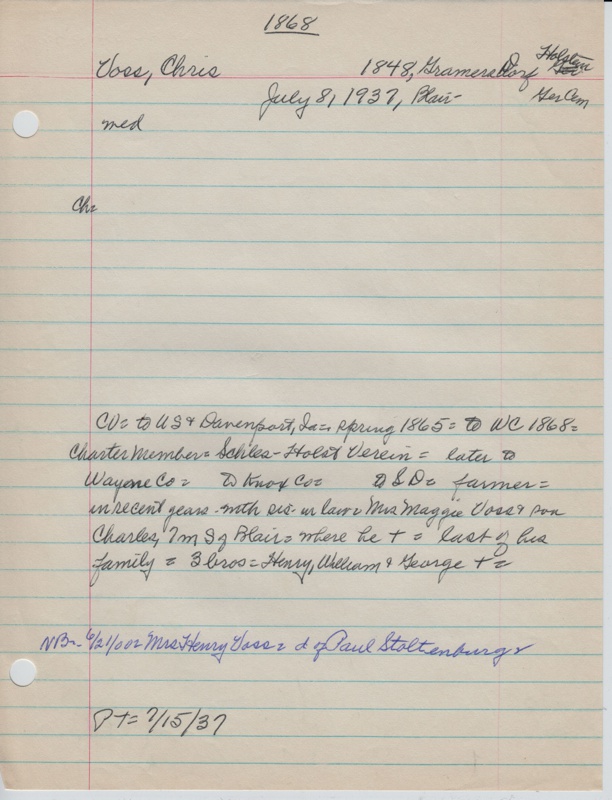 1868
Voss, Chris 1848, Gramersdorf Holstein Ger
July 8, 1937, Blair- Ger Cem
med
Ch=
CV= to US & Davenport, Ia=, spring 1865= to WC 1868=
Charter Member= Schles-Holst Verein= later to
Wayne Co= to Knox Co= to S D= farmer=
in recent years- with sis in law= Mrs Maggie Voss & son
Charles, 7 m S of Blair= where he += last of his
family = 3 bros= Henry, William & George +=
NB- 6/21/00= Mrs Henry Voss= d of Paul Stoltenburg=
P T= 7/15/37